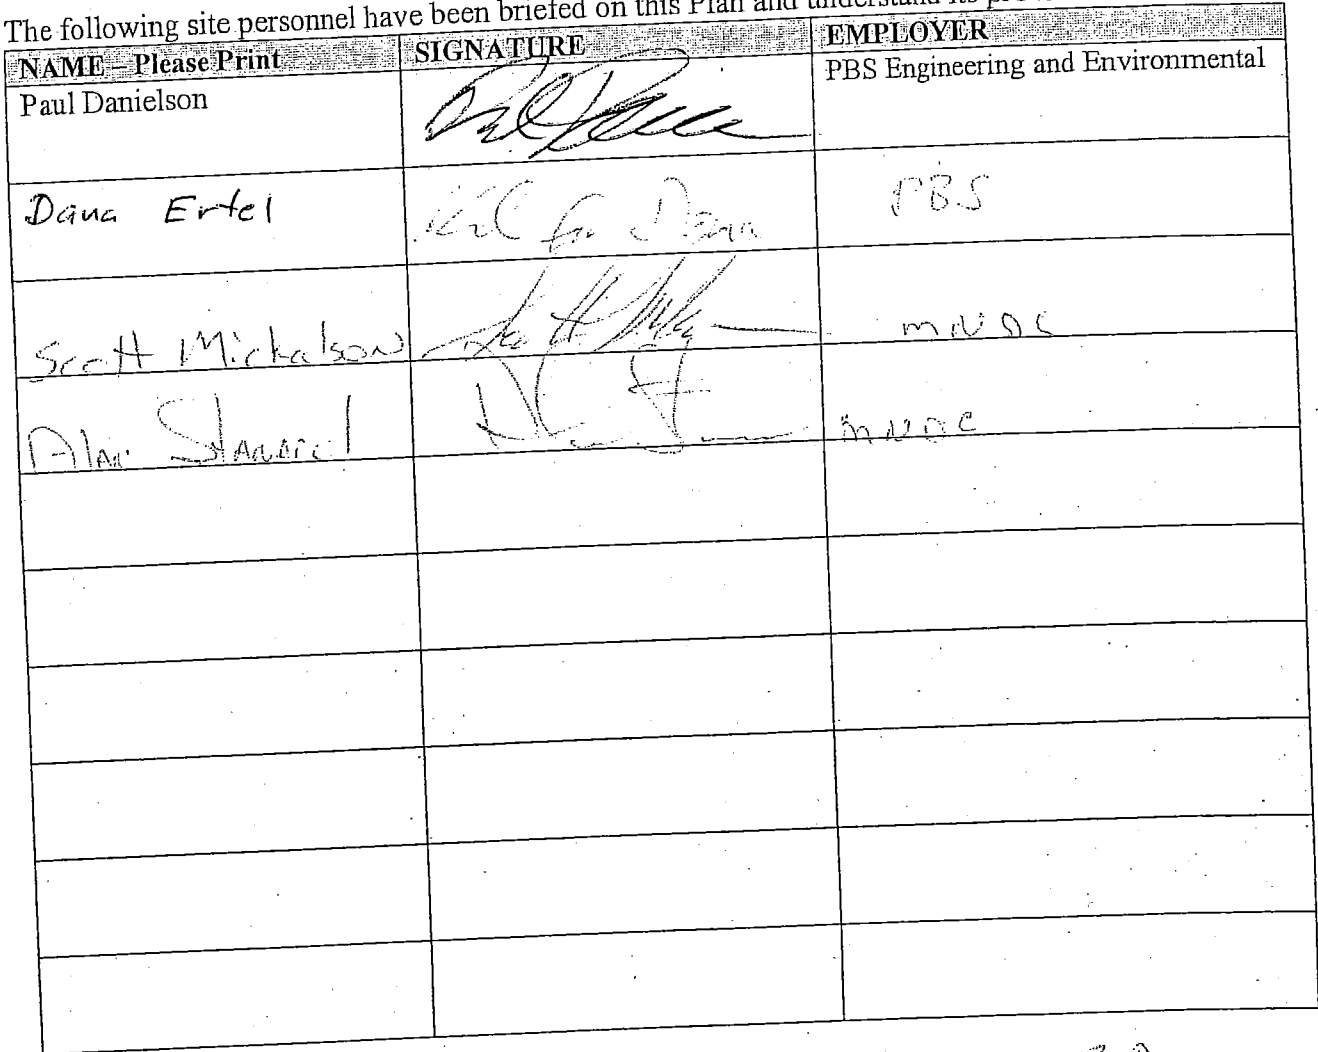 The following site personnel have been briefed on this Plan and understand its
NAME – Please Print SIGNATURE EMPLOYER
Paul Danielson PBS Engineering and Environmental
Dana Ertel for Dana PBS
Scott Mickalson MNDC
Alan MNDC